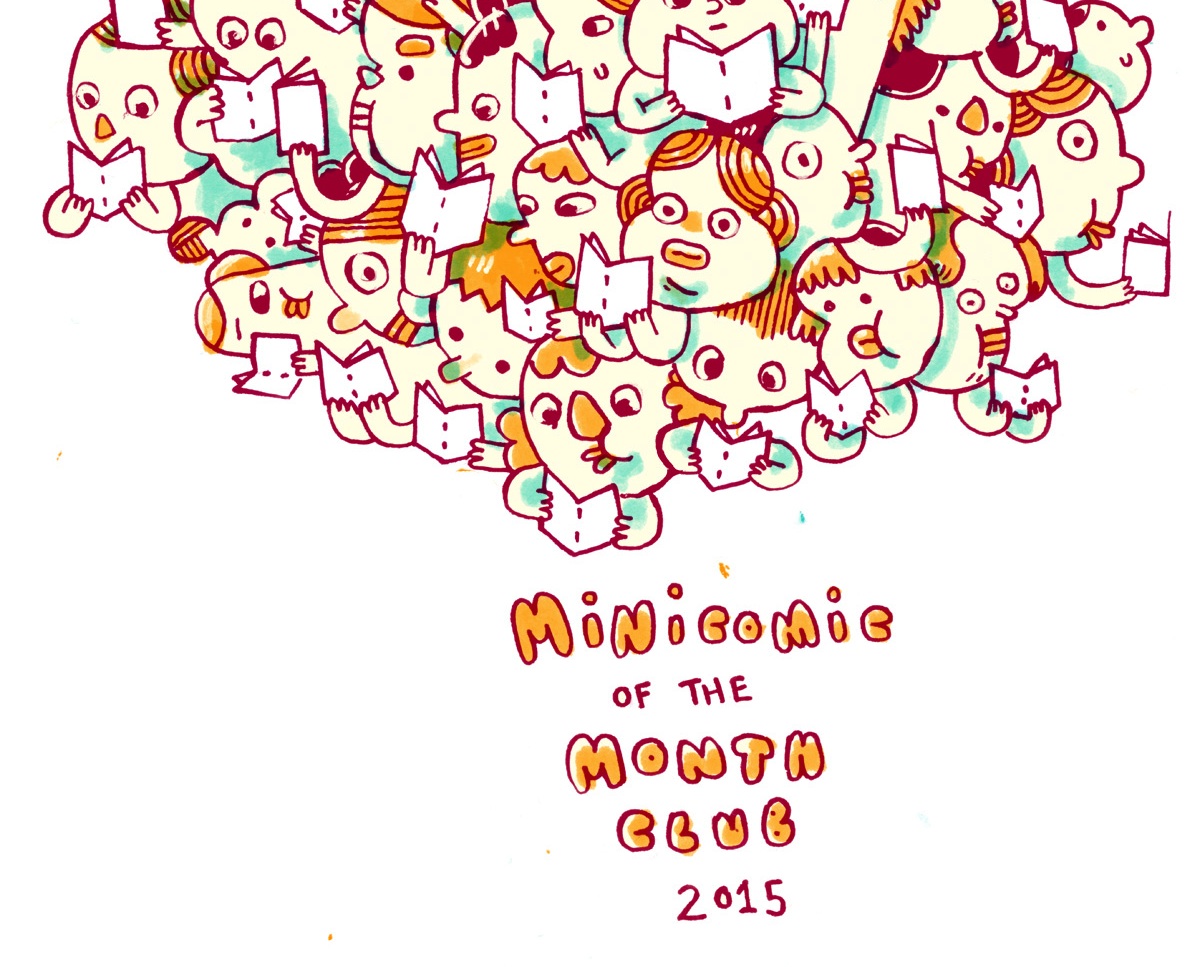 MiNicoMic
OF THE
MONTH
CLUB
2015